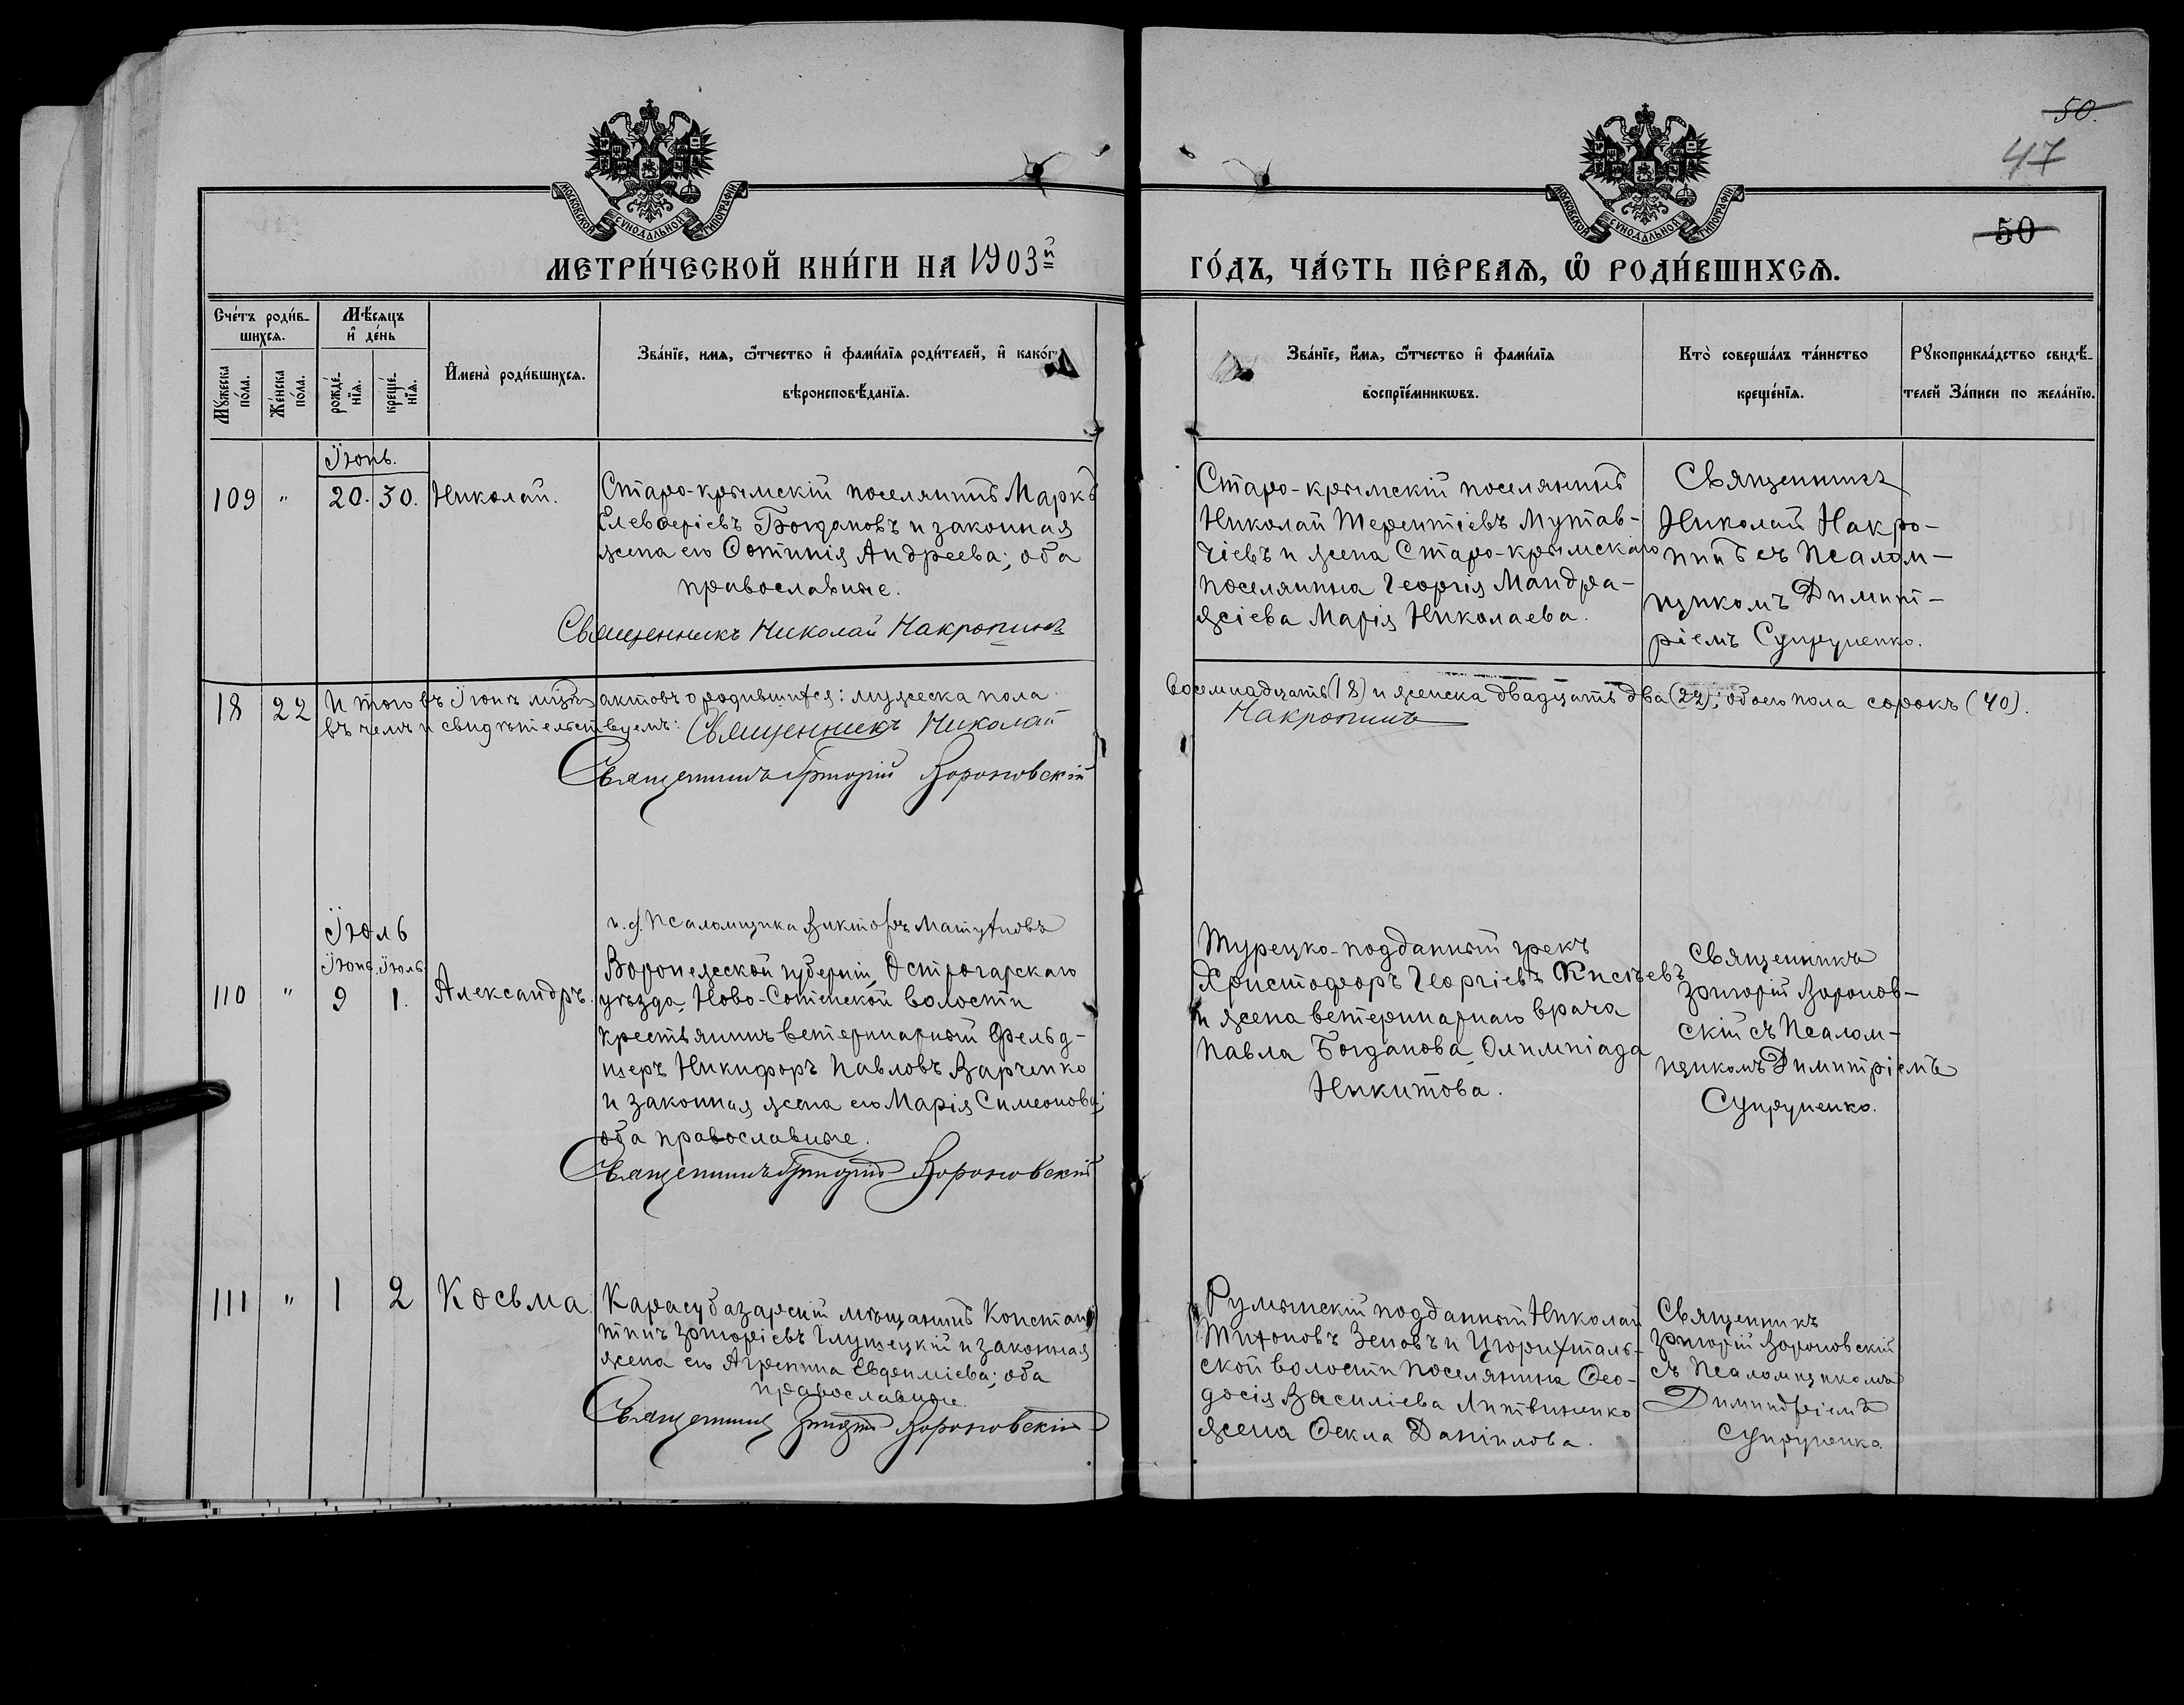 50.
47
50
МОСКОВСКОЙ СѴНОДАЛЬНОЙ ТИПОГРАФІИ
МОСКОВСКОЙ СѴНОДАЛЬНОЙ ТИПОГРАФІИ
МЕТРИ́ЧЕСКОЙ КНИ́ГИ НА 1903й
ГО́ДЪ, ЧА́СТЬ ПЕ́РВАѦ, Ѡ РОДИ́ВШИХСѦ.
Сче́тъ роди́в-
шихсѧ.
Мѣ́сѧцъ
и҆ де́нь
Мꙋ́жеска
по́ла.
Же́нска
по́ла.
рожде́-
нїѧ.
креще́-
нїѧ.
И҆мена̀ роди́вшихсѧ.
Зва́нїе, имѧ, ѻ҆́тчество и҆ фами́лїѧ роди́телей, и҆ како́гѡ
вѣроисповѣ́данїѧ.
Зва́нїе, и҆́мѧ, ѻ҆́тчество и҆ фами́лїѧ
воспрїе́мникѡвъ.
Кто̀ соверша́лъ та́инство
креще́нїѧ.
Рꙋкоприкла́дство свидѣ́-
телей За́писи по жела́нїю.
Іюнь.
109 " 20. 30. Николай.
Старо-крымскій поселянинъ Маркъ
Елевѳеріевъ Богдановъ и законная
жена его Фотинія Андреева; оба
православные.
Священникъ Николай Накропинъ
Старо-крымскій поселянинъ
Николай Терентіевъ Мутав-
чіевъ и жена Старо-крымскаго
поселянина Георгія Мандра-
жіева Марія Николаева.
Священникъ
Николай Накро-
пинъ съ Псалом-
щикомъ Димит-
ріемъ Супруненко.
18 22 Итого въ Іюнѣ мцѣ актовъ о родившихся: мужеска пола
восемнадцать (18) и женска двадцать два (22); обоего пола сорокъ (40).
въ чемъ и свидѣтельствуемъ: Священникъ Николай
Накропинъ
Священникъ Григорій Вороновскій
и. д. Псаломщика Викторъ
Іюль
Іюнь. Іюль.
110 " 9 1. Александръ.
Воронежской губерніи, Острогарскаго
уѣзда, Ново-Сотенской волости
крестьянинъ ветеринарный фельд-
шеръ Никифоръ Павловъ Варченко
и законная жена его Марія Симеонова;
оба православные.
Священникъ Григорій Вороновскій
Турецко-подданный грекъ
Христофоръ Георгіевъ Кисѣевъ
и жена ветеринарнаго врача
Павла Богданова Олимпіада
Никитова.
Священникъ
Григорій Воронов-
скій съ Псалом-
щикомъ Димитріемъ
Супруненко.
111 " 1 2 Косьма
Карасубазарскій мѣщанинъ Констан
тинъ Григоріевъ Глушецкій и законная
жена его Агрепина Евфиміева; оба
православные.
Священникъ Григорій Вороновскій
Румынскій подданный Николай
Тихоновъ Зеновъ и Цюрихталь-
ской волости поселянина Ѳео-
досія Василіева Литвиненко
жена Ѳекла Даніилова.
Священникъ
Григорій Вороновскій
съ Псаломщикомъ
Димитріемъ
Супруненко.